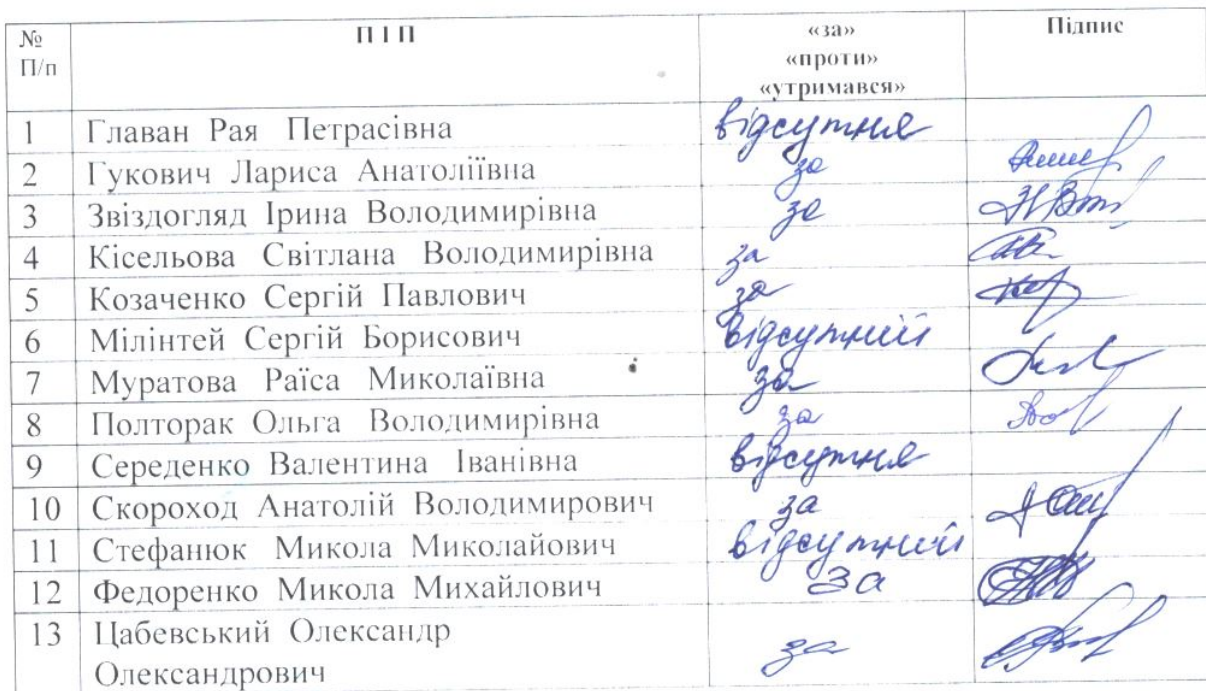 № П І П «за» Підпис
П/п «проти»
«утримався»
1 Главан Рая Петрасівна відсутня
2 Гукович Лариса Анатоліївна за
3 Звіздогляд Ірина Володимирівна за
4 Кісельова Світлана Володимирівна за
5 Козаченко Сергій Павлович за
6 Мілінтей Сергій Борисович відсутній
7 Муратова Раїса Миколаївна за
8 Полторак Ольга Володимирівна за
9 Середенко Валентина Іванівна відсутня
10 Скороход Анатолій Володимирович за
11 Стефанюк Микола Миколайович відсутній
12 Федоренко Микола Михайлович за
13 Цабевський Олександр за
Олександрович